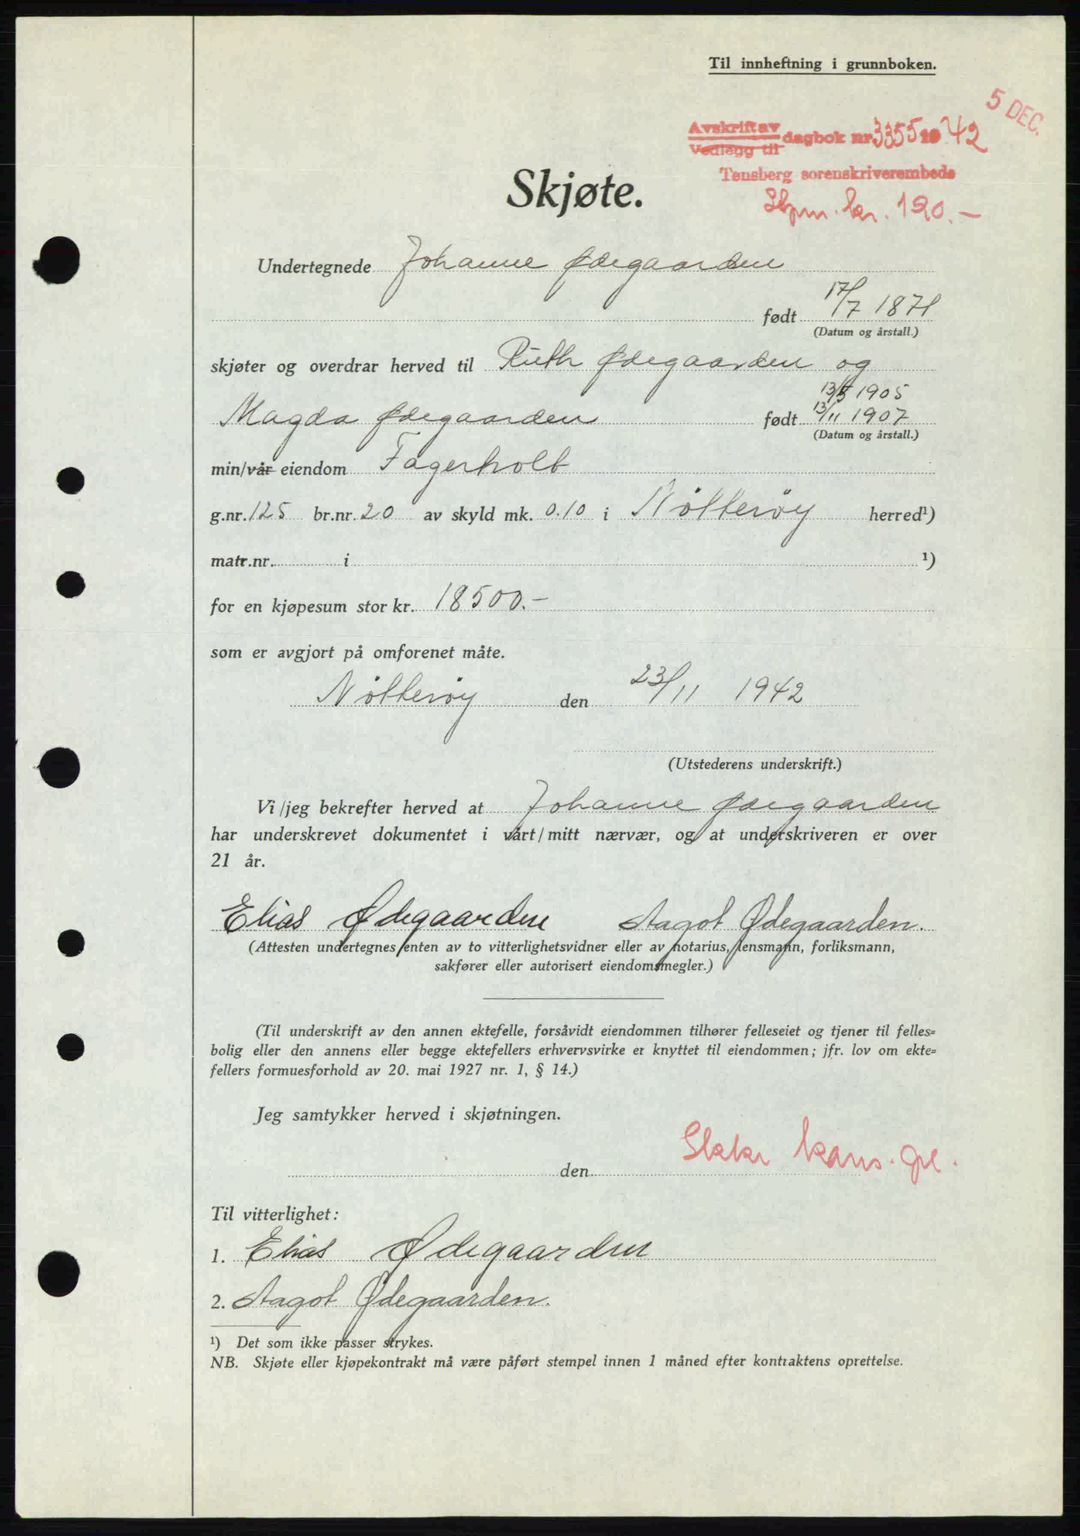 Til innheftning i grunnboken.
5 DEC.
Avskrift av
Vedlegg til dagbok nr. 3355 19 42
Tønsberg sorenskriverembede
Stpm. kr. 120.-
Skjøte.
Undertegnede Johanne Ødegaarden
født 17/7 1871
(Datum og årstall.)
skjøter og overdrar herved til Ruth Ødegaarden og
13/5 1905
Magda Ødegaarden født 13/11 1907
(Datum og årstall.)
min/vår eiendom Fagerholt
g.nr. 125 br.nr. 20 av skyld mk. 0.10 i Nøtterøy herred¹)
matr.nr. i ¹)
for en kjøpesum stor kr. 18500.-
som er avgjort på omforenet måte.
Nøtterøy den 23/11 1942
(Utstederens underskrift.)
Vi/jeg bekrefter herved at Johanne Ødegaarden
har underskrevet dokumentet i vårt/mitt nærvær, og at underskriveren er over
21 år.
Elias Ødegaarden Aagot Ødegaarden.
(Attesten undertegnes enten av to vitterlighetsvidner eller av notarius, lensmann, forliksmann,
sakfører eller autorisert eiendomsmegler.)
(Til underskrift av den annen ektefelle, forsåvidt eiendommen tilhører felleseiet og tjener til felles-
bolig eller den annens eller begge ektefellers erhvervsvirke er knyttet til eiendommen; jfr. lov om ekte-
fellers formuesforhold av 20. mai 1927 nr. 1, § 14.)
Jeg samtykker herved i skjøtningen.
den
Til vitterlighet:
1. Elias Ødegaarden
2. Aagot Ødegaarden.
¹) Det som ikke passer strykes.
NB. Skjøte eller kjøpekontrakt må være påført stempel innen 1 måned efter kontraktens oprettelse.